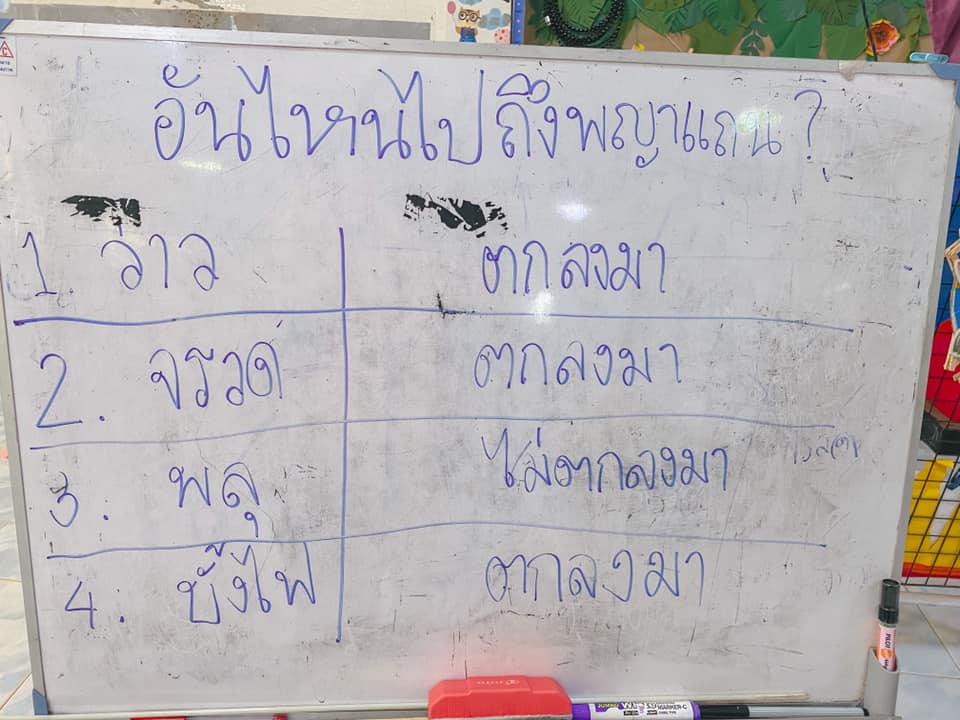 อันไหนไปถึงพญาแถน?
1. ว่าว ตกลงมา
2. จรวด ตกลงมา
3. พลุ ไม่ตกลงมา
4. บั้งไฟ ตกลงมา
PILOT
JUMBO
MARKER-C